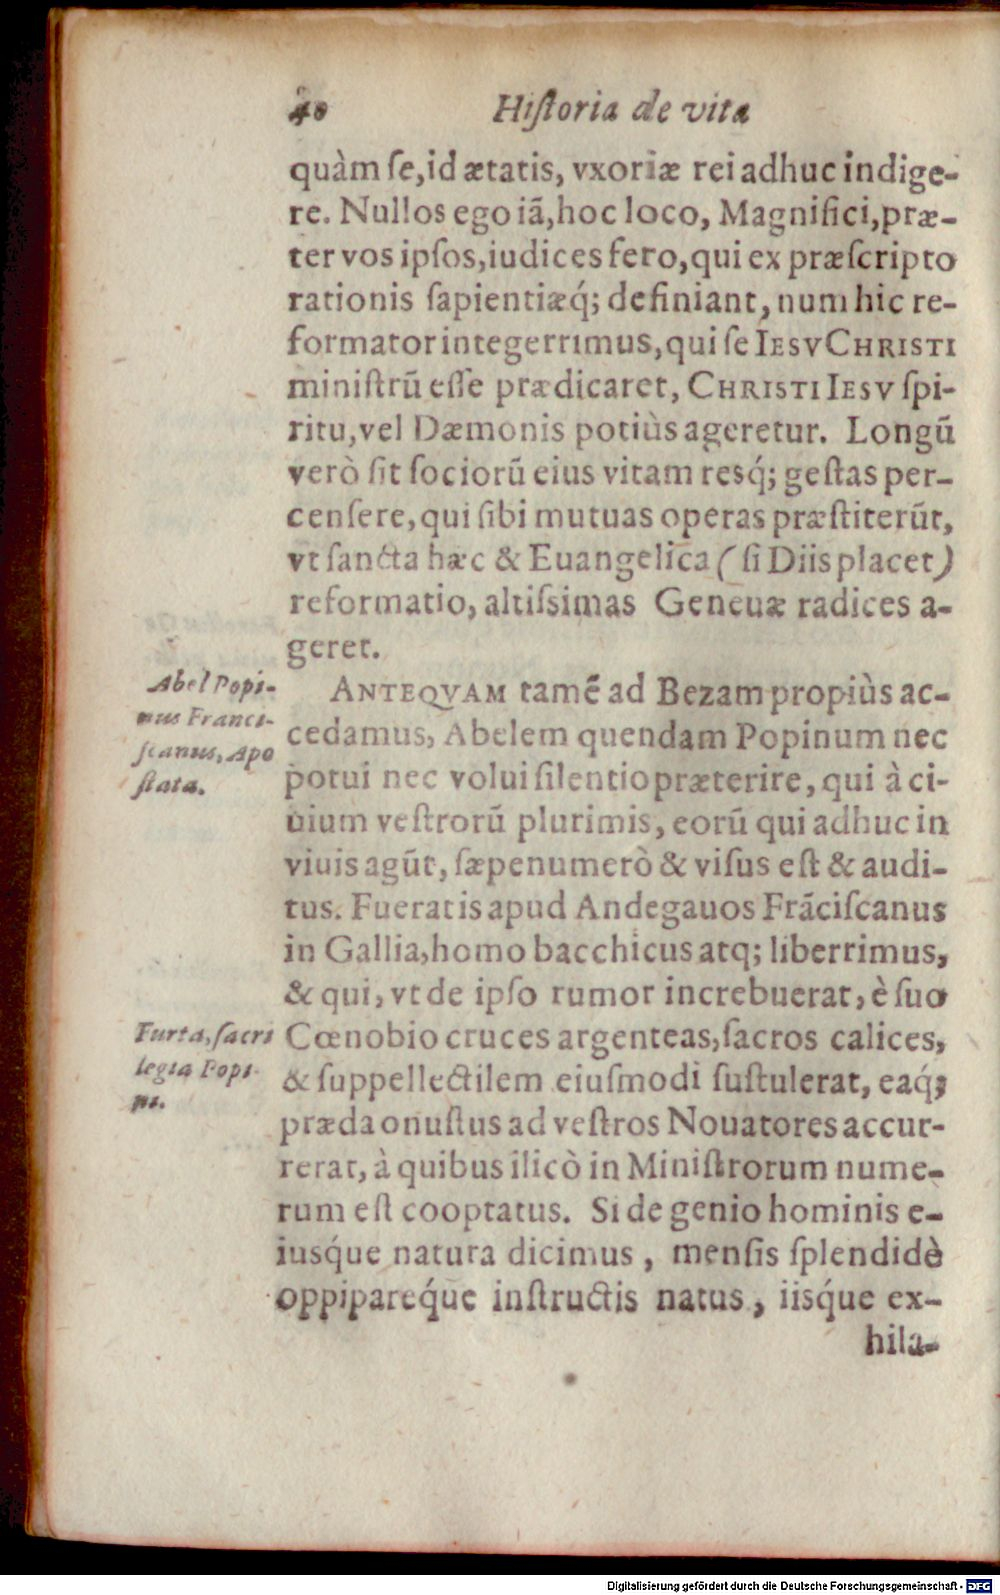 40 Hiſtoria de vita
quàm ſe, id ætatis, vxoriæ rei adhuc indige-
re. Nullos ego iã, hoc loco, Magnifici, præ-
ter vos ipſos, iudices fero, qui ex præſcripto
rationis ſapientiæq́; definiant, num hic re-
formator integerrimus, qui ſe IESV CHRISTI
miniſtrũ eſſe prædicaret, CHRISTI IESV ſpi-
ritu, vel Dæmonis potiùs ageretur. Longũ
verò ſit ſociorũ eius vitam resq́; geſtas per-
cenſere, qui ſibi mutuas operas præſtiterũt,
vt ſancta hæc & Euangelica (ſi Diis placet)
reformatio, altiſsimas Geneuæ radices a-
geret.
Abel Popi-
nus Franci-
ſcanus, Apo
ſtata.
ANTEQVAM tamẽ ad Bezam propiùs ac-
cedamus, Abelem quendam Popinum nec
potui nec volui ſilentio præterire, qui à ci-
uium veſtrorũ plurimis, eorũ qui adhuc in
viuis agũt, ſæpenumerò & viſus eſt & audi-
tus. Fuerat is apud Andegauos Frãciſcanus
in Gallia, homo bacchicus atq; liberrimus,
& qui, vt de ipſo rumor increbuerat, è ſuo
Furta, ſacri
legia Popi-
ni.
Cœnobio cruces argenteas, ſacros calices,
& ſuppellectilem eiuſmodi ſuſtulerat, eaq́;
præda onuſtus ad veſtros Nouatores accur-
rerat, à quibus ilicò in Miniſtrorum nume-
rum eſt cooptatus. Si de genio hominis e-
iusq́ue natura dicimus, menſis ſplendidè
oppipareq́ue inſtructis natus, iisq́ue ex-
hila-
Digitalisierung gefördert durch die Deutsche Forschungsgemeinschaft - DFG